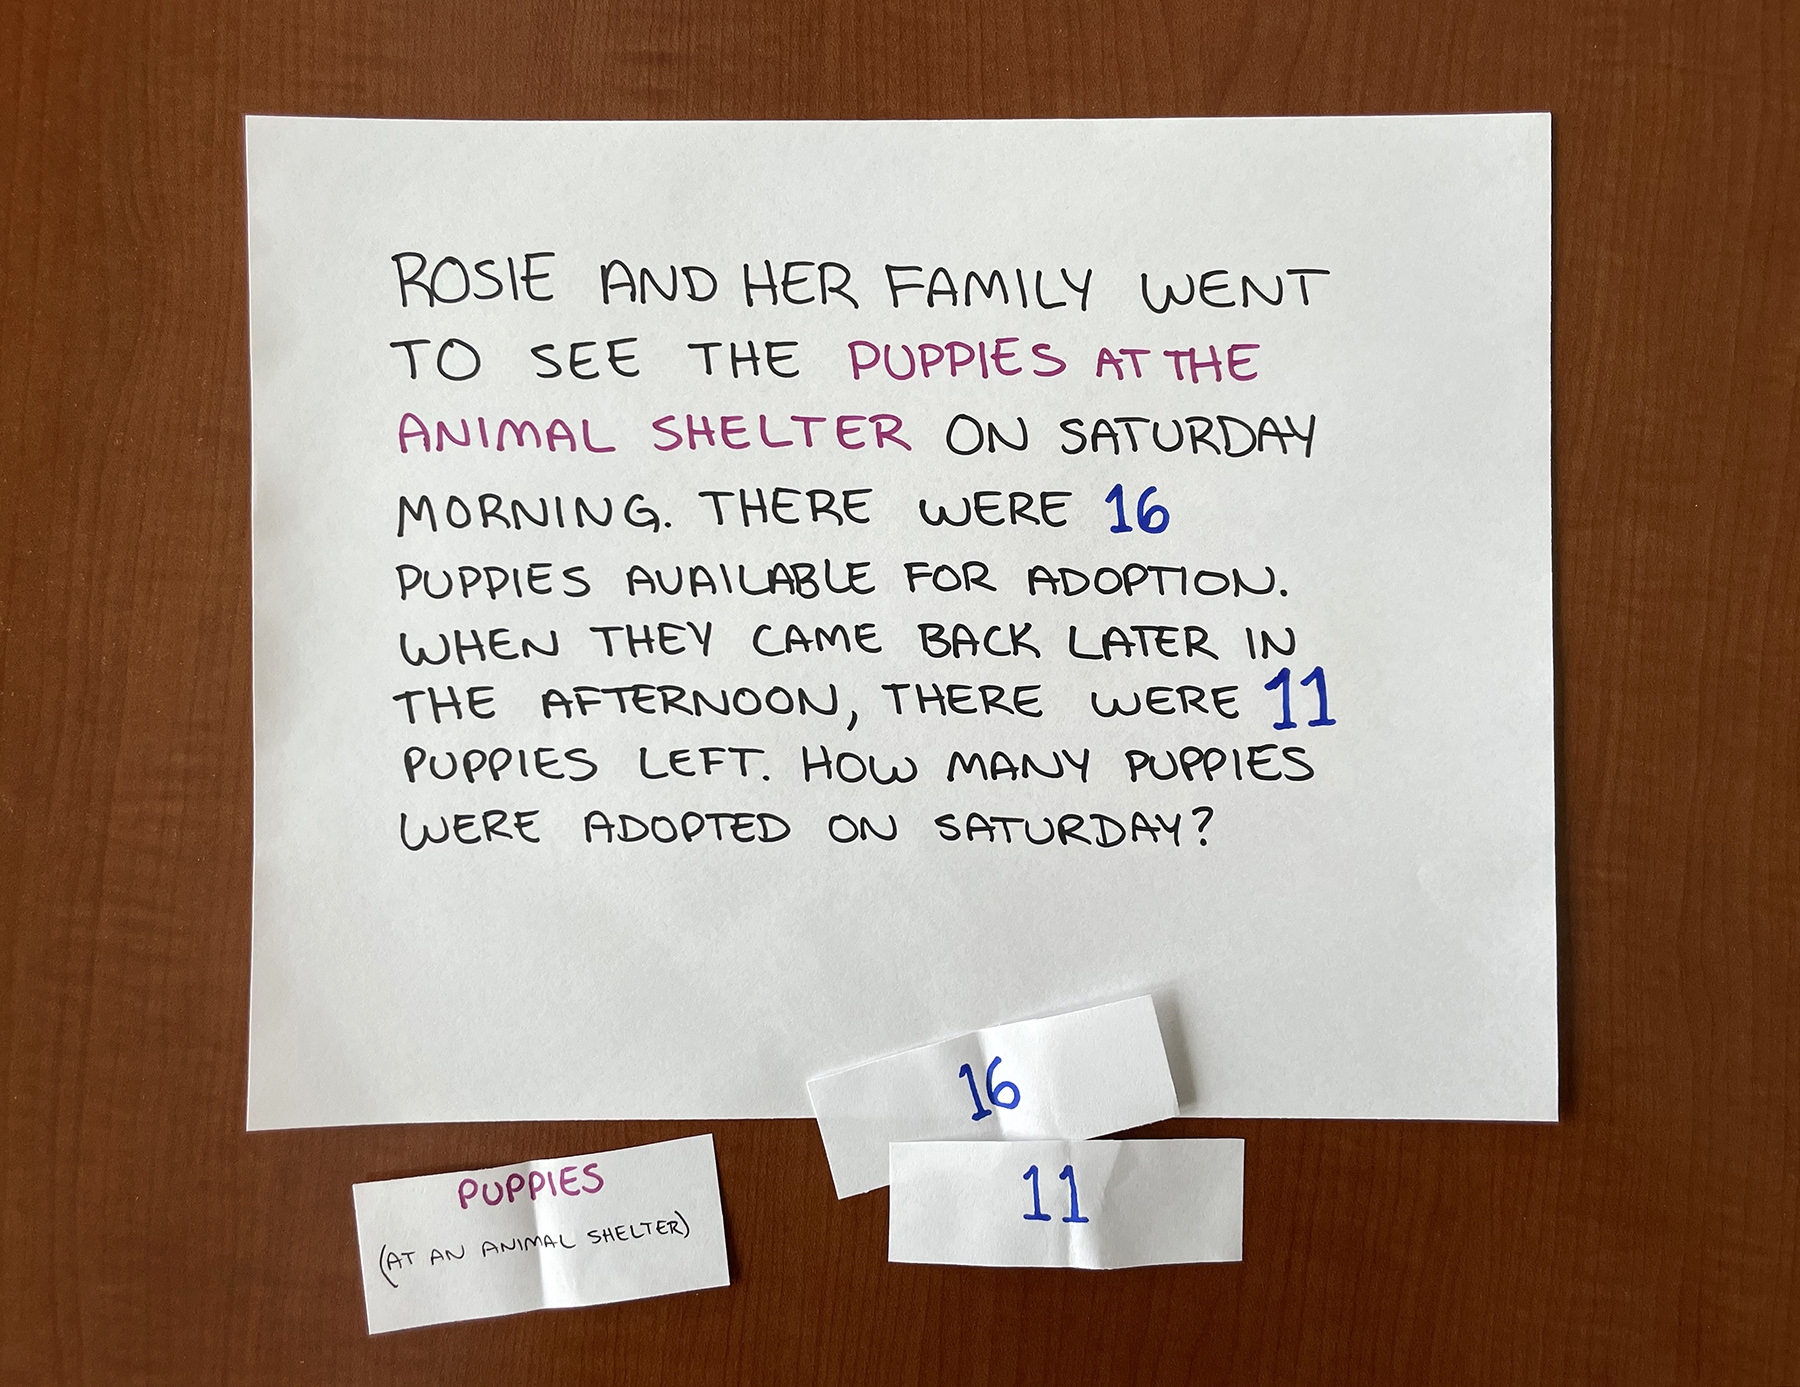 ROSIE AND HER FAMILY WENT
TO SEE THE PUPPIES AT THE
ANIMAL SHELTER ON SATURDAY
MORNING. THERE WERE 16
PUPPIES AVAILABLE FOR ADOPTION.
WHEN THEY CAME BACK LATER IN
THE AFTERNOON, THERE WERE 11
PUPPIES LEFT. HOW MANY PUPPIES
WERE ADOPTED ON SATURDAY?
16
11
PUPPIES
(AT AN ANIMAL SHELTER)